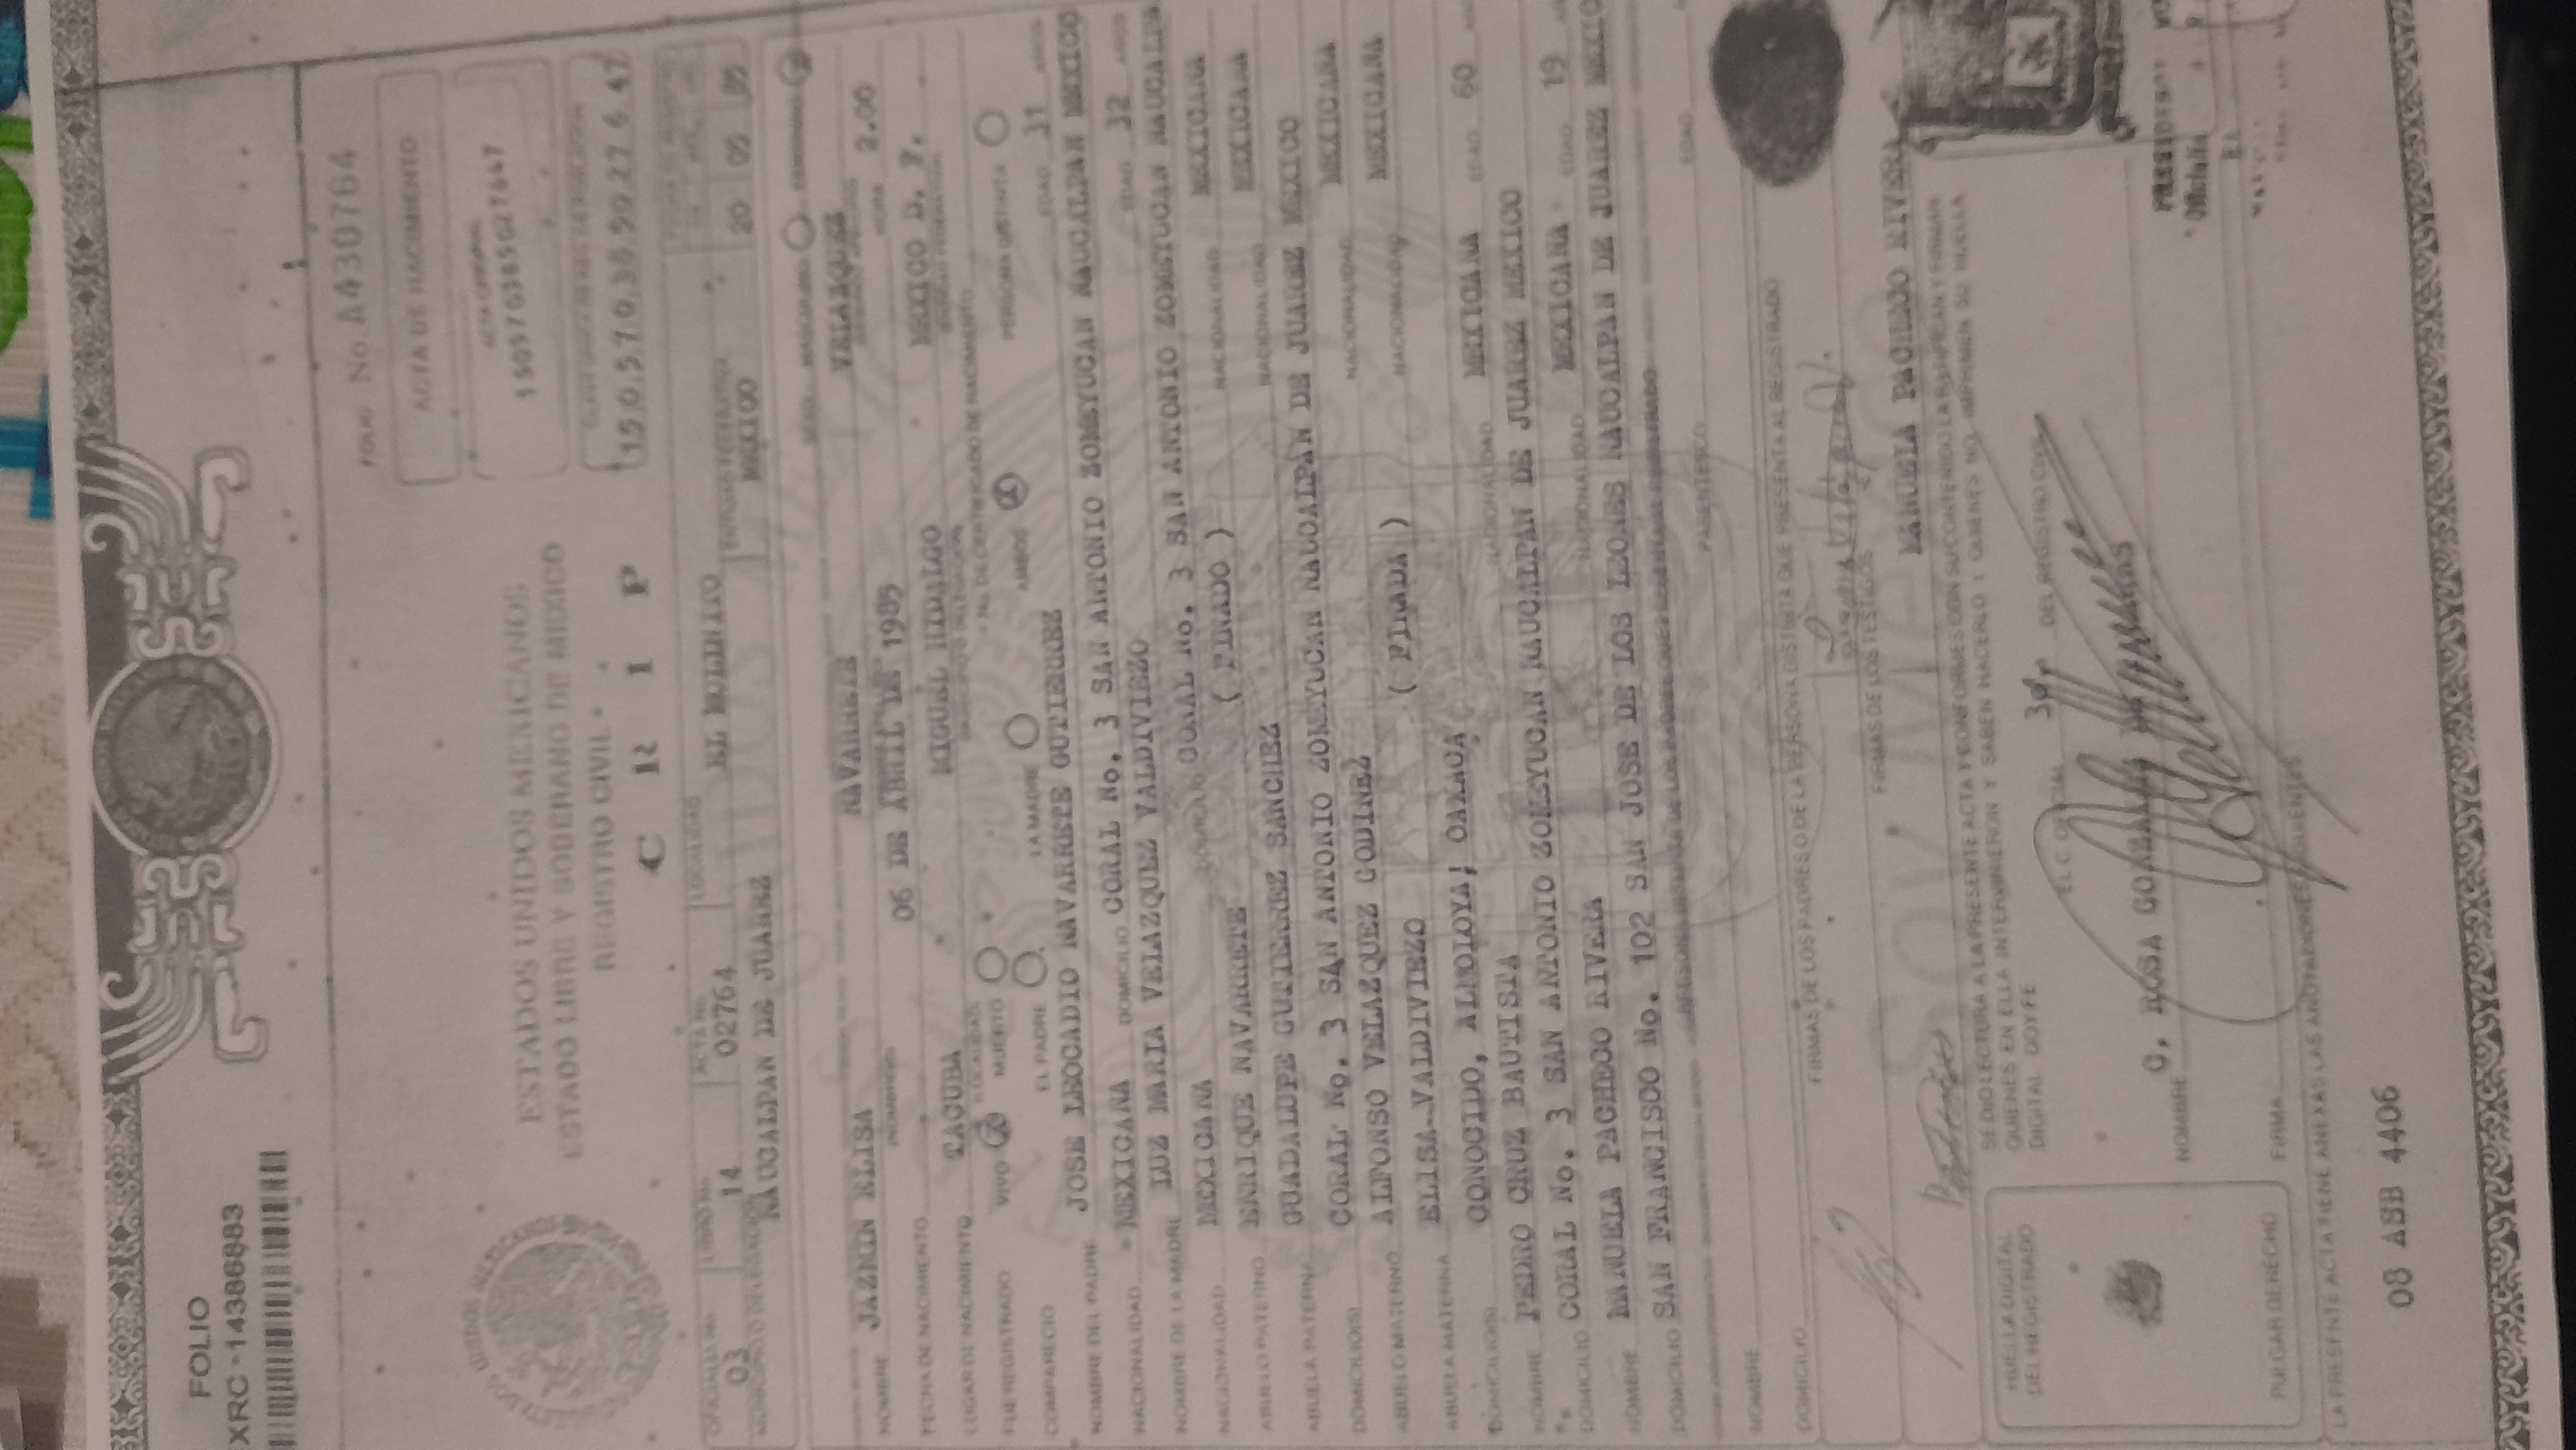 FOLIO
XRC -14386883
FOLIO No. A430764
ESTADOS UNIDOS MEXICANOS
ESTADO LIBRE Y SOBERANO DE MEXICO
REGISTRO CIVIL
C R I P
ACTA DE NACIMIENTO
OFICIALIA No. 03
LIBRO No. 14
ACTA No. 02764
LOCALIDAD EL MOLINITO
ENTIDAD FEDERATIVA MEXICO
20 05 85
NAUCALPAN DE JUAREZ
SEXO: MASCULINO FEMENINO
NOMBRE JAZMIN ELISA NAVARRETE VELAZQUEZ
FECHA DE NACIMIENTO 06 DE ABRIL DE 1985 HORA 2.00
LUGAR DE NACIMIENTO TACUBA MIGUEL HIDALGO MEXICO D. F.
FUE REGISTRADO VIVO MUERTO No. DE CERTIFICADO DE NACIMIENTO
COMPARECIO EL PADRE LA MADRE AMBOS PERSONA DISTINTA
NOMBRE DEL PADRE JOSE LEOCADIO NAVARRETE GUTIERREZ EDAD 31 AÑOS
NACIONALIDAD MEXICANA DOMICILIO CORAL No. 3 SAN ANTONIO ZOMEYUCAN NAUCALPAN MEXICO
NOMBRE DE LA MADRE LUZ MARIA VELAZQUEZ VALDIVIEZO EDAD 32 AÑOS
NACIONALIDAD MEXICANA DOMICILIO CORAL No. 3 SAN ANTONIO ZOMEYUCAN NAUCALPA
ABUELO PATERNO ENRIQUE NAVARRETE ( FINADO ) NACIONALIDAD MEXICANA
ABUELA PATERNA GUADALUPE GUTIERREZ SANCHEZ NACIONALIDAD MEXICANA
DOMICILIO(S) CORAL No. 3 SAN ANTONIO ZOMEYUCAN NAUCALPAN DE JUAREZ MEXICO
ABUELO MATERNO ALFONSO VELAZQUEZ GODINEZ NACIONALIDAD MEXICANA
ABUELA MATERNA ELISA VALDIVIEZO ( FINADA ) NACIONALIDAD MEXICANA
DOMICILIO(S) CONOCIDO, ALMOLOYA, OAXACA
NOMBRE PEDRO CRUZ BAUTISTA NACIONALIDAD MEXICANA EDAD 60
DOMICILIO CORAL No. 3 SAN ANTONIO ZOMEYUCAN NAUCALPAN DE JUAREZ MEXICO
NOMBRE MANUELA PACHECO RIVERA NACIONALIDAD MEXICANA EDAD 19
DOMICILIO SAN FRANCISCO No. 102 SAN JOSE DE LOS LEONES NAUCALPAN DE JUAREZ MEXICO
NOMBRE PARENTESCO EDAD
DOMICILIO
FIRMAS DE LOS PADRES O DE LA PERSONA DISTINTA QUE PRESENTA AL REGISTRADO
FIRMAS DE LOS TESTIGOS
MANUELA PACHECO RIVERA
SE DIO LECTURA A LA PRESENTE ACTA Y CONFORMES CON SU CONTENIDO LA RATIFICAN Y FIRMAN
QUIENES EN ELLA INTERVINIERON Y SABEN HACERLO Y QUIENES NO, IMPRIMEN SU HUELLA
DIGITAL. DOY FE
HUELLA DIGITAL
DEL REGISTRADO
EL C. OFICIAL DEL REGISTRO CIVIL
NOMBRE C. ROSA
FIRMA
PULGAR DERECHO
LA PRESENTE ACTA TIENE ANEXAS LAS ANOTACIONES SIGUIENTES
08 ASB 4406